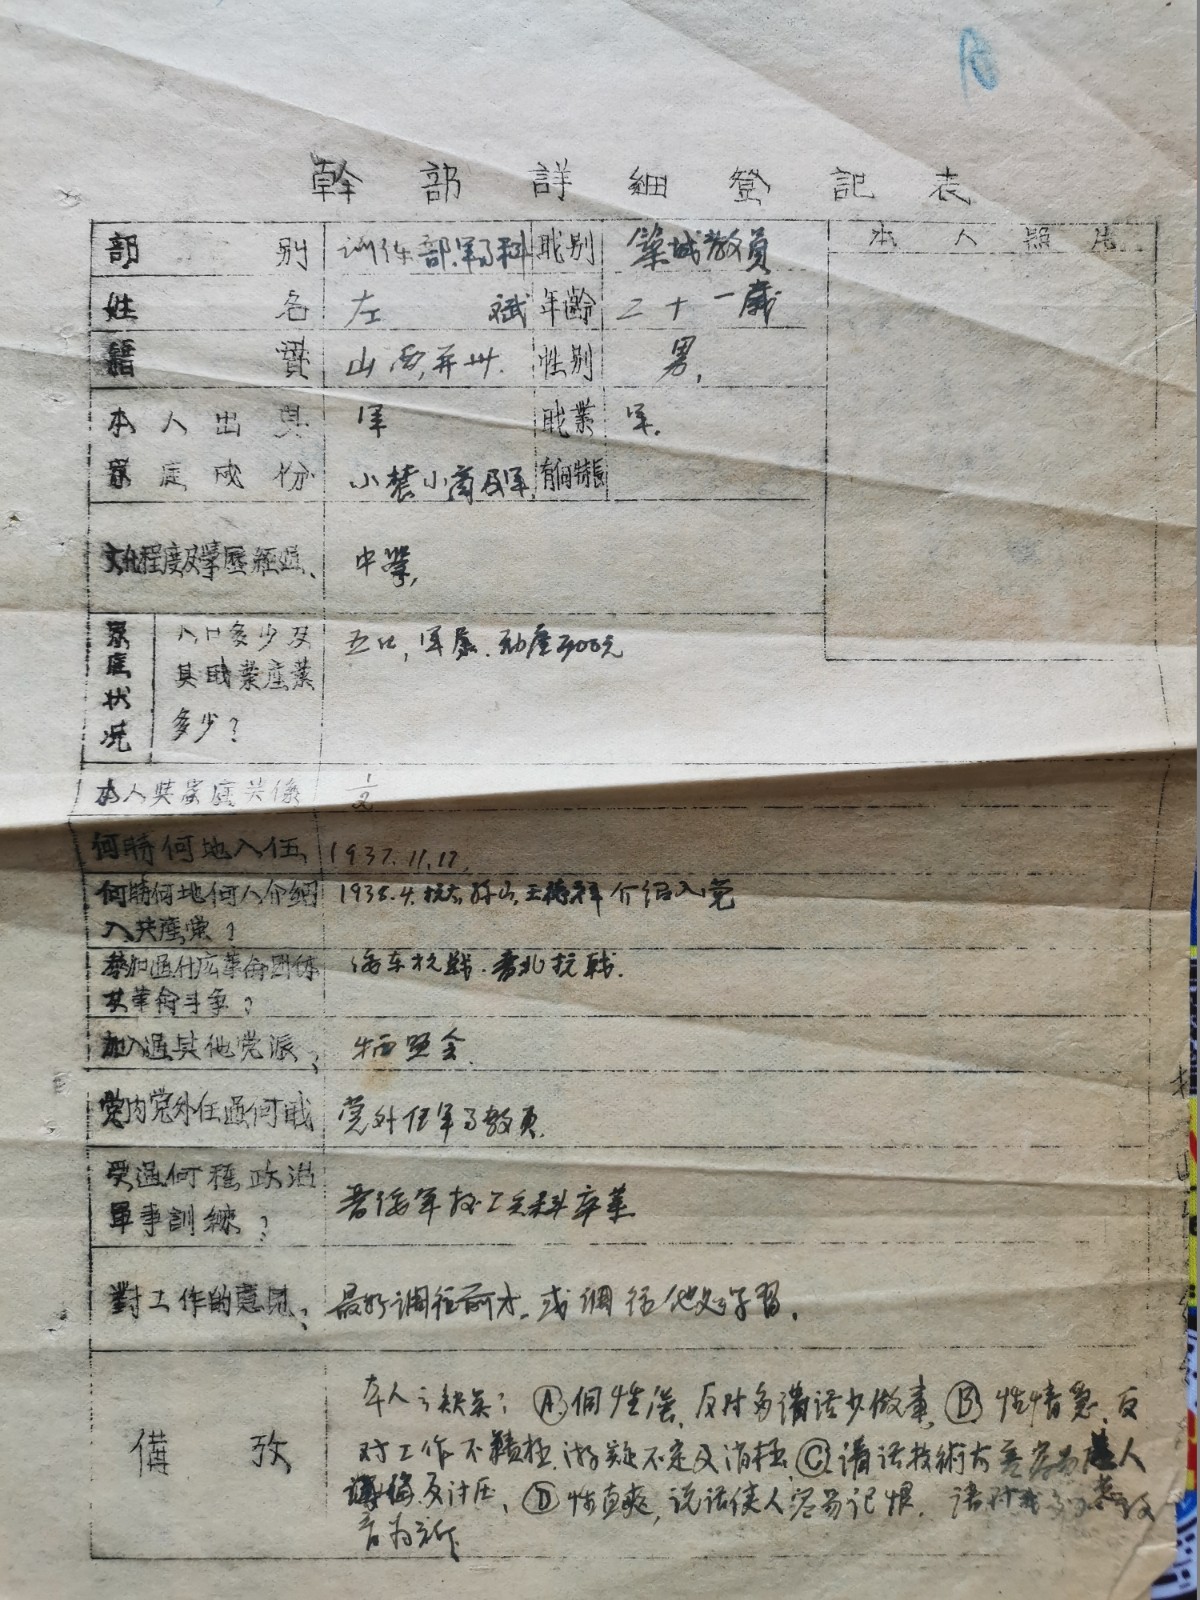 幹部詳細登記表
部別 訓練部軍事科 職別 築城教員 本人照片
姓名 左斌 年齡 二十一歲
籍貫 山西,平 性別 男,
本人出身 军 職業 军.
家庭成份 小農小商及军, 有何特長
文化程度及學歷經過、 中學,
家庭状况 人口多少及 五口,军屬.动產300元
其職業產業
多少?
本人與家庭关係
何時何地入伍, 1937.11.17,
何時何地何人介紹 1938.4.抗大, 介绍入党
入共產党?
參加過什広革命团体 绥东抗战.晋北抗战.
及革命斗争?
加入過其他党派? 牺盟会.
党内党外任過何職 党外任军事教員.
受過何種政治 晋绥军校工兵科卒業
軍事訓練?
對工作的意見? 最好调往前方.或调往他处学習.
備攷 本人之缺矣: Ⓐ個性强,反对多講话少做事, Ⓑ性情急,反
对工作不積極,游疑不定及消極,Ⓒ講话技術 容易 人
反 Ⓓ性直爽,说话使人容易记恨.